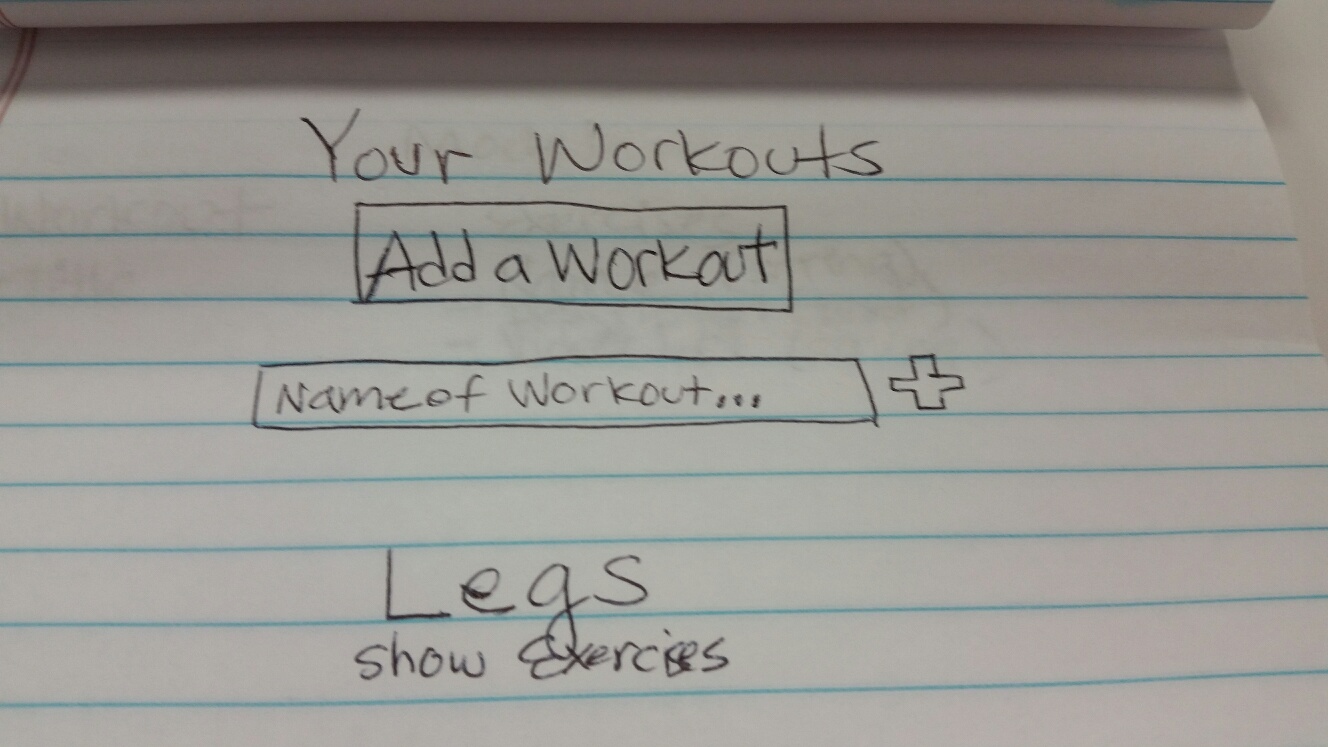 Your Workouts
Add a Workout
Name of Workout...
Legs
show Exercises